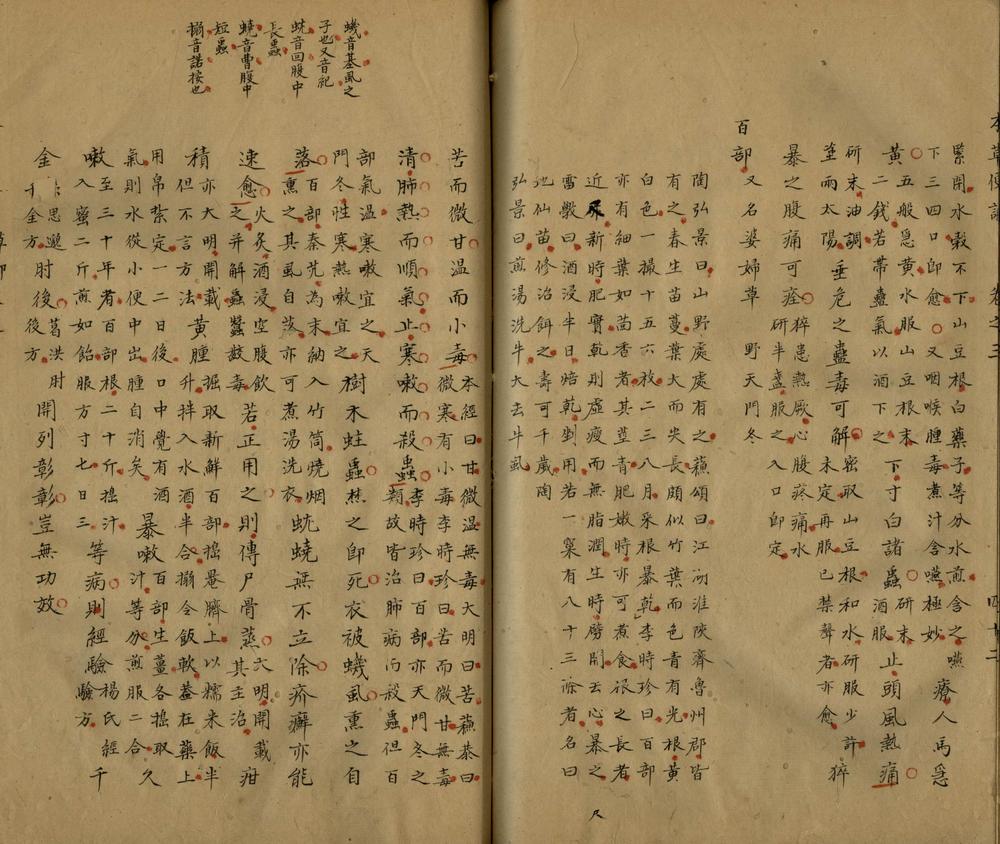 緊開水穀不下山豆根白藥子等分水煎含之嚥
下三四口即愈又咽喉腫毒煮汁含嚥極妙 療人馬急
黃 五般急黃水服山豆根末
二錢若帶蠱氣以酒下之 下寸白諸蟲 研末酒服 止頭風熱痛
研末油調
塗兩太陽 垂危之蠱毒可解 密取山豆根和水研服少許
未定再服已禁聲者亦愈 猝
暴之腹痛可痊 猝患熱厥心腹疼痛水
研半盞服之入口即定
百部 又名婆婦草 野天門冬
陶弘景曰山野處處有之蘇頌曰江湖淮陝齊魯州郡皆
有之春生苗蔓葉大而尖長頗似竹葉而色青有光根黃
白色一撮十五六枚二三八月采根暴乾李時珍曰百部
亦有細葉如茴香者其莖青肥嫩時亦可煮食根之長者
近尿新時肥實乾則虛瘦而無脂潤生時劈開去心暴之
雷斆曰酒浸半日焙乾剉用若一窠有八十三條者名曰
地仙苗修治餌之壽可千歲陶
弘景曰煎湯洗牛犬去牛虱
尺
蟣音基虱之
子也又音祀
蚘音回腹中
長蟲
蟯音曹腹中
短蟲
搦音諾按也
苦而微甘溫而小毒 本經曰甘微溫無毒大明曰苦蘇恭曰
微寒有小毒李時珍曰苦而微甘無毒
清肺熱而順氣止寒嗽而殺蟲 李時珍曰百部亦天門冬之
類故皆治肺病而殺蟲但百
部氣溫寒嗽宜之天
門冬性寒熱嗽宜之 樹木蛀蟲焚之即死衣被蟣虱熏之自
落 百部秦艽為末納入竹筒燒烟
熏之其虱自落亦可煮湯洗衣 蚘蟯無不立除疥癬亦能
速愈 火炙酒浸空腹飲
之并解蟲蠶齩毒 若正用之則傳尸骨蒸 大明開載疳
其主治
積 亦大明開載
但不言方法 黃腫 掘取新鮮百部搗罨臍上以糯米飯半
升拌入水酒半合搦令飯軟蓋在藥上
用帛紮定一二日後口中覺有酒
氣則水從小便中出腫自消矣 暴嗽 百部生薑各搗取
汁等分煎服二合 久
嗽 至三十年者百部根二十斤搗汁
入蜜二斤煎如飴服方寸七日三 等病則經驗 楊氏經
驗方 千
金 思邈
千金方 肘後 葛洪肘
後方 開列彰彰豈無功效